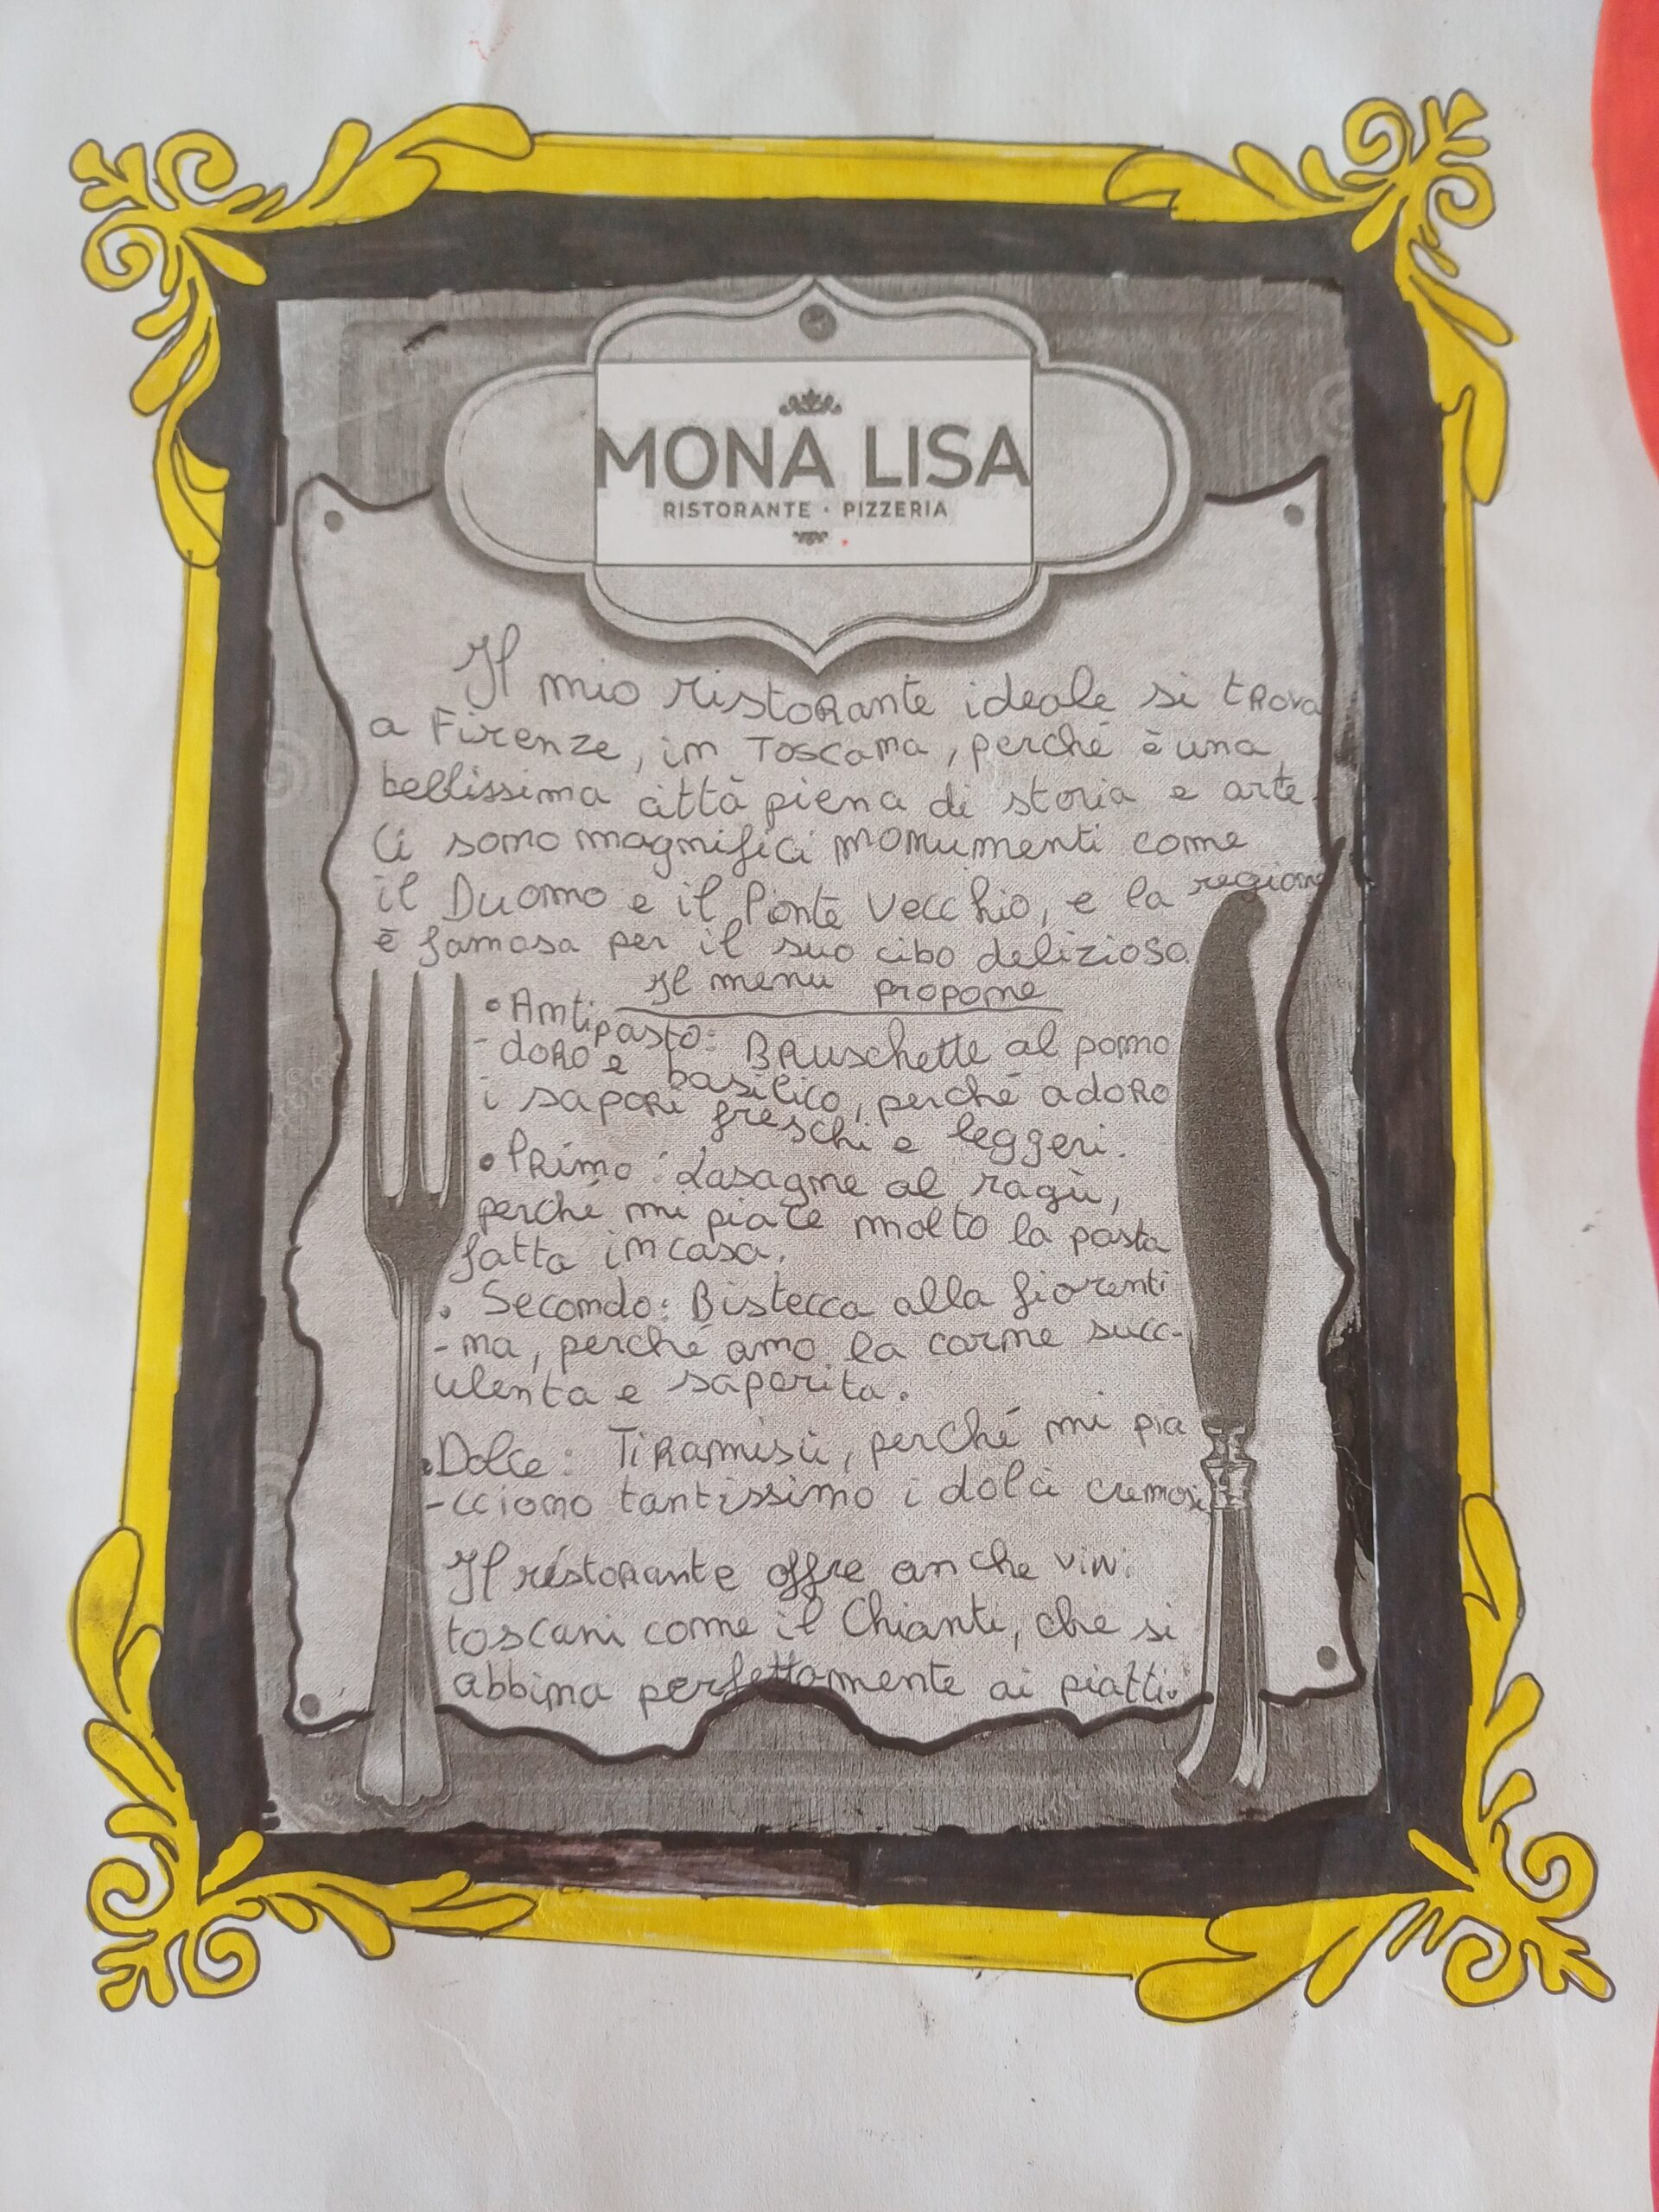 MONA LISA
RISTORANTE · PIZZERIA
Il mio ristorante ideale si trova
a Firenze, in Toscana, perché è una
bellissima città piena di storia e arte.
Ci sono magnifici monumenti come
il Duomo e il Ponte Vecchio, e la regione
è famosa per il suo cibo delizioso.
Il menu propone
• Antipasto: Bruschette al pomo
-doro e basilico, perché adoro
i sapori freschi e leggeri.
• Primo: Lasagne al ragù,
perché mi piace molto la pasta
fatta in casa.
• Secondo: Bistecca alla fiorenti
-na, perché amo la carne succ-
ulenta e saporita.
• Dolce: Tiramisù, perché mi pia
-cciono tantissimo i dolci cremosi
Il ristorante offre anche vini
toscani come il Chianti, che si
abbina perfettamente ai piatti.